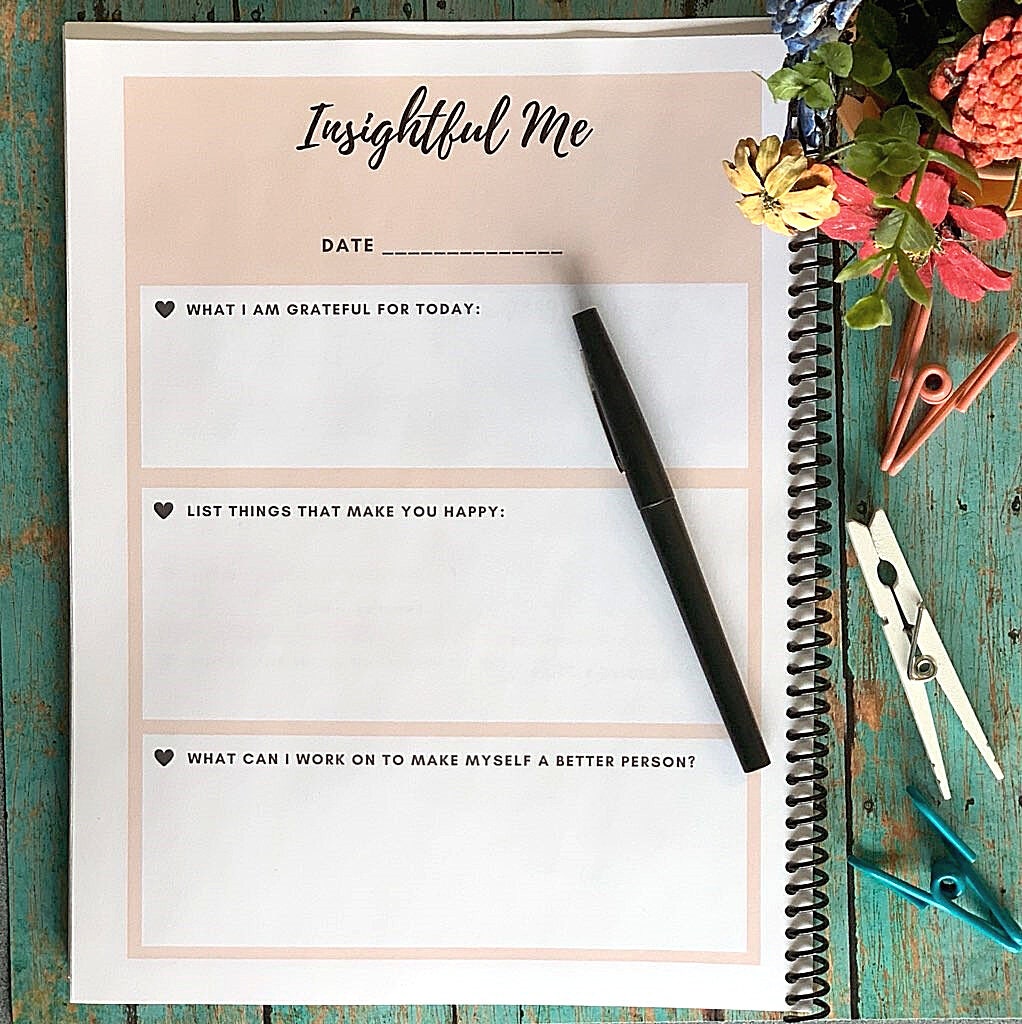 Insightful Me
DATE ______________
WHAT I AM GRATEFUL FOR TODAY:
LIST THINGS THAT MAKE YOU HAPPY:
WHAT CAN I WORK ON TO MAKE MYSELF A BETTER PERSON?